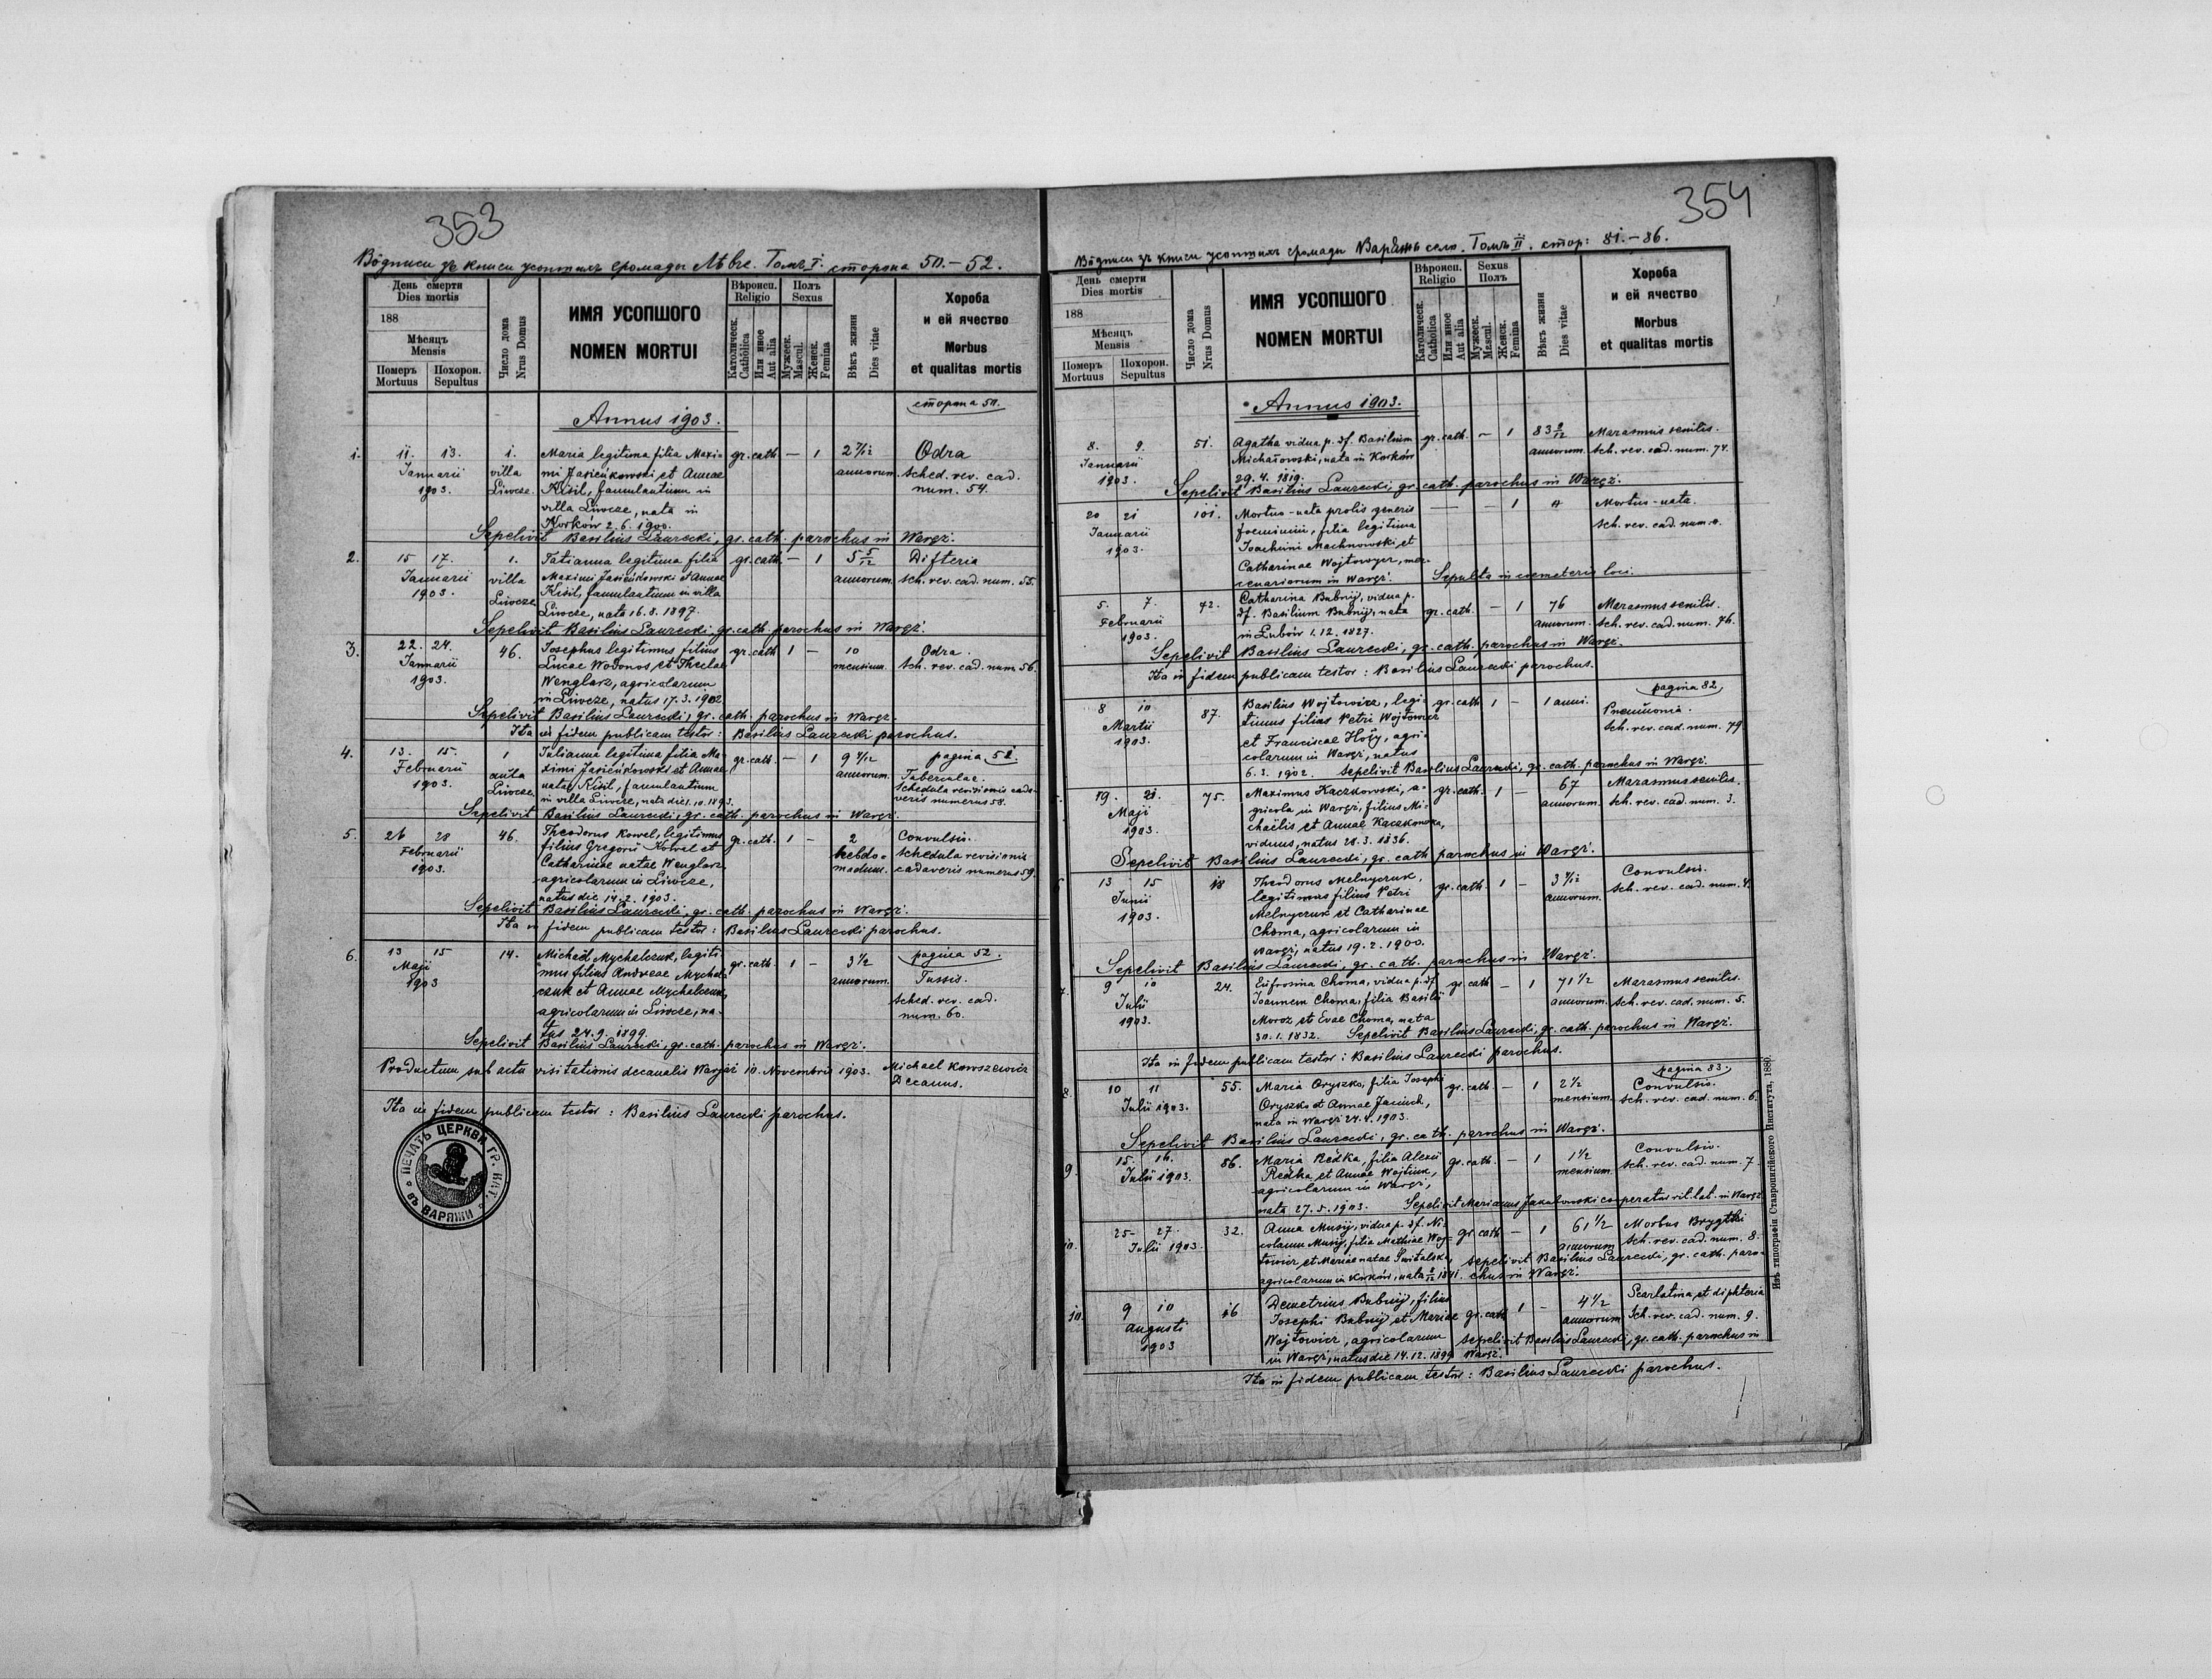 353
Вôдписи зъ книги усопшихъ громады Лѣвче. Томъ I. сторона 50.-52.
День смерти
Dies mortis
188
Мѣсяцъ
Mensis
Померъ
Mortuus
Похорон.
Sepultus
Число дома
Nrus Domus
ИМЯ УСОПШОГО
NOMEN MORTUI
Вѣроисп.
Religio
Католическ.
Catholica
Или иное
Aut alia
Полъ
Sexus
Мужеск.
Mascul.
Женск.
Femina
Вѣкъ жизни
Dies vitae
Хороба
и ей ячество
Morbus
et qualitas mortis
Annus 1903.
сторона 50.
1. 11. 13. 1. Maria legitima filia Maxi- gr. cath — 1 2 7/12 Odra
Januarii villa mi Jasieńkowski et Annae annorum. sched. rev. cad.
1903. Liwcze. Kisil, famulantium in num. 54.
villa Liwcze, nata in
Korków 2. 6. 1900.
Sepelivit Basilius Laurecki, gr. cath. parochus in Waręż.
2. 15 17. 1. Tatianna legitima filia gr. cath. — 1 5 5/12 Difteria
Januarii villa Maximi Jasieńkowski et Annae annorum. sch. rev. cad. num. 55.
1903. Liwcze Kisil, famulantium in villa
Liwcze, nata 16. 8. 1897.
Sepelivit Basilius Laurecki, gr. cath. parochus in Waręż.
3. 22. 24. 46. Josephus legitimus filius gr. cath 1 — 10 Odra.
Januarii Lucae Wodonos et Theclae mensium. sch. rev. cad. num 56.
1903. Wenglarz, agricolarum
in Liwcze, natus 17. 3. 1902
Sepelivit Basilius Laurecki, gr. cath. parochus in Waręż.
Ita in fidem publicam testor: Basilius Laurecki parochus.
4. 13. 15. 1 Julianna legitima filia Ma- gr. cath. — 1 9 4/12 pagina 51.
Februarii villa ximi Jasieńkowski et Annae annorum. Tuberculae.
1903. Liwcze natae Kisil, famulantium schedula revisionis cada-
in villa Liwcze, nata die 1. 10. 1893. veris numerus 58.
Sepelivit Basilius Laurecki, gr. cath. parochus in Waręż.
5. 26 28 46. Theodorus Kowel, legitimus gr. cath. 1 — 2 Convulsio.
Februarii filius Gregorii Kowel et hebdo- schedula revisionis
1903. Catharinae natae Wenglarz, madum. cadaveris numerus 59.
agricolarum in Liwcze,
natus die 14. 2. 1903.
Sepelivit Basilius Laurecki, gr. cath. parochus in Waręż.
Ita in fidem publicam testor: Basilius Laurecki parochus.
6. 13 15 14. Michaël Mychalczuk, legiti- gr. cath. 1 — 3 1/2 pagina 52.
Maji mus filius Andreae Mychal- annorum. Tussis.
1903 czuk et Annae Mychalczuk, sched. rev. cad.
agricolarum in Liwcze, na- num. 60.
tus 24. 9. 1899.
Sepelivit Basilius Laurecki, gr. cath. parochus in Waręż.
Productum sub actu visitationis decanalis Waręż 10. Novembris 1903. Michael Knyszewicz
Decanus.
Ita in fidem publicam testor: Basilius Laurecki parochus.
ПЕЧАТЬ ЦЕРКВИ ГР. КАТ. ВЪ ВАРЯЖИ
354
Вôдписи зъ книги усопшихъ громады Варяжъ село. Томъ II. стор: 81.-86.
День смерти
Dies mortis
188
Мѣсяцъ
Mensis
Померъ
Mortuus
Похорон.
Sepultus
Число дома
Nrus Domus
ИМЯ УСОПШОГО
NOMEN MORTUI
Вѣроисп.
Religio
Католическ.
Catholica
Или иное
Aut alia
Sexus
Полъ
Мужеск.
Mascul.
Женск.
Femina
Вѣкъ жизни
Dies vitae
Хороба
и ей ячество
Morbus
et qualitas mortis
Annus 1903.
8. 9. 51. Agatha vidua p. df. Basilium gr. cath. — 1 83 9/12 Marasmus senilis.
Januarii Michałowski, nata in Korków annorum. sch. rev. cad. num. 74.
1903. 29. 4. 1819.
Sepelivit Basilius Laurecki, gr. cath. parochus in Waręż.
20 21 101. Mortuo-nata prolis generis — — 1 Mortuo-nata.
Januarii foeminini, filia legitima sch. rev. cad. num. 0.
1903. Joachimi Machnowski et
Catharinae Wojtowycz, mer-
cenariorum in Waręż. Sepulta in coemeterio loci.
5. 7. 42. Catharina Bubnij, vidua p. gr. cath. — 1 76 Marasmus senilis.
Februarii df. Basilium Bubnij, nata annorum. sch. rev. cad. num. 76.
1903. in Łubów 1. 12. 1827.
Sepelivit Basilius Laurecki, gr. cath. parochus in Waręż.
Ita in fidem publicam testor: Basilius Laurecki parochus.
pagina 82
8 10 87. Basilius Wojtowicz, legi- gr. cath 1 — 1 anni. Pneumonia.
Martii timus filius Petri Wojtowicz sch. rev. cad. num. 79
1903. et Franciscae Hoły, agri-
colarum in Waręż, natus
6. 3. 1902. Sepelivit Basilius Laurecki, gr. cath. parochus in Waręż.
19. 21. 75. Maximus Kaczkowski, a- gr. cath. 1 — 67 Marasmus senilis.
Maji gricola in Waręż, filius Mi- annorum. sch. rev. cad. num. 3.
1903. chaëlis et Annae Kaczkowska,
viduus, natus 28. 3. 1836.
Sepelivit Basilius Laurecki, gr. cath parochus in Waręż.
13 15 18 Theodorus Melnyczuk, gr. cath. 1 — 3 4/12 Convulsio.
Junii legitimus filius Petri annorum. sch. rev. cad. num. 4.
1903. Melnyczuk et Catharinae
Choma, agricolarum in
Waręż, natus 19. 2. 1900.
Sepelivit Basilius Laurecki, gr. cath. parochus in Waręż.
7. 9 10 24. Eufrosina Choma, vidua p. df. gr. cath — 1 71 1/2 Marasmus senilis.
Julii Joannem Choma, filia Basilii annorum. sch. rev. cad. num. 5.
1903. Moroz et Evae Choma, nata
30. 1. 1832. Sepelivit Basilius Laurecki, gr. cath. parochus in Waręż.
Ita in fidem publicam testor: Basilius Laurecki parochus.
pagina 83.
8. 10 11 55. Maria Oryszko, filia Josephi gr. cath — 1 2 1/2 Convulsio.
Julii 1903. Oryszko et Annae Jaciuk, mensium. sch. rev. cad. num. 6.
nata in Waręż 24. 4. 1903.
Sepelivit Basilius Laurecki, gr. cath. parochus in Waręż.
9. 15. 16. 86. Maria Redka, filia Alexii gr. cath. — 1 1 1/2 Convulsio.
Julii 1903. Redka et Annae Wojtiuk, mensium. sch. rev. cad. num. 7.
agricolarum in Waręż,
nata 27. 5. 1903. Sepelivit Marianus Jakubowski cooperator rit. lat. in Waręż
10. 25- 27. 32. Anna Musij, vidua p. df. Ni- gr. cath — 1 61 1/2 Morbus Brygtki
Julii 1903. colaum Musij, filia Mathiae Woj- annorum sch. rev. cad. num. 8.
towicz et Mariae natae Switalska, sepelivit Basilius Laurecki, gr. cath. paro-
agricolarum in Korków, nata 1841. chus in Waręż.
9 10 16 Demetrius Bubnij, filius gr. cath 1 — 4 1/2 Scarlatina et diphteria
Augusti Josephi Bubnij et Mariae annorum sch. rev. cad. num. 9.
1903 Wojtowicz, agricolarum sepelivit Basilius Laurecki, gr. cath. parochus in
in Waręż, natus die 14. 12. 1899 Waręż.
Ita in fidem publicam testor: Basilius Laurecki parochus.
Изъ типографіи Ставропигійского Института, 1880.